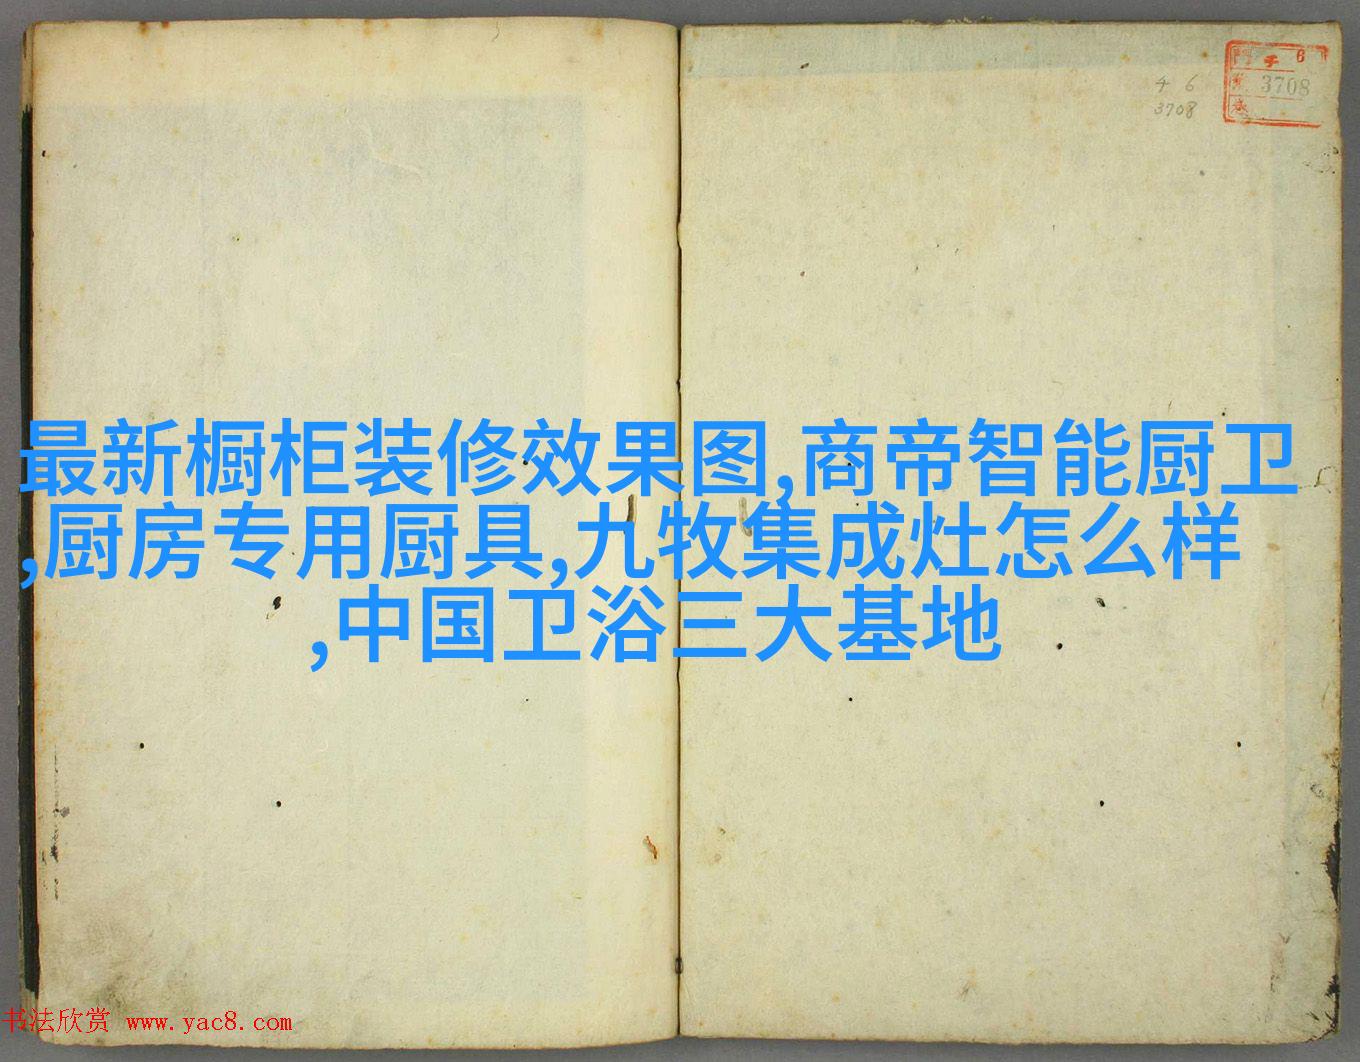 6
千
3708
千 6
3708
最新橱柜装修效果图,商帝智能厨卫
,厨房专用厨具,九牧集成灶怎么样
,中国卫浴三大基地
书法欣赏 www.yac8.com